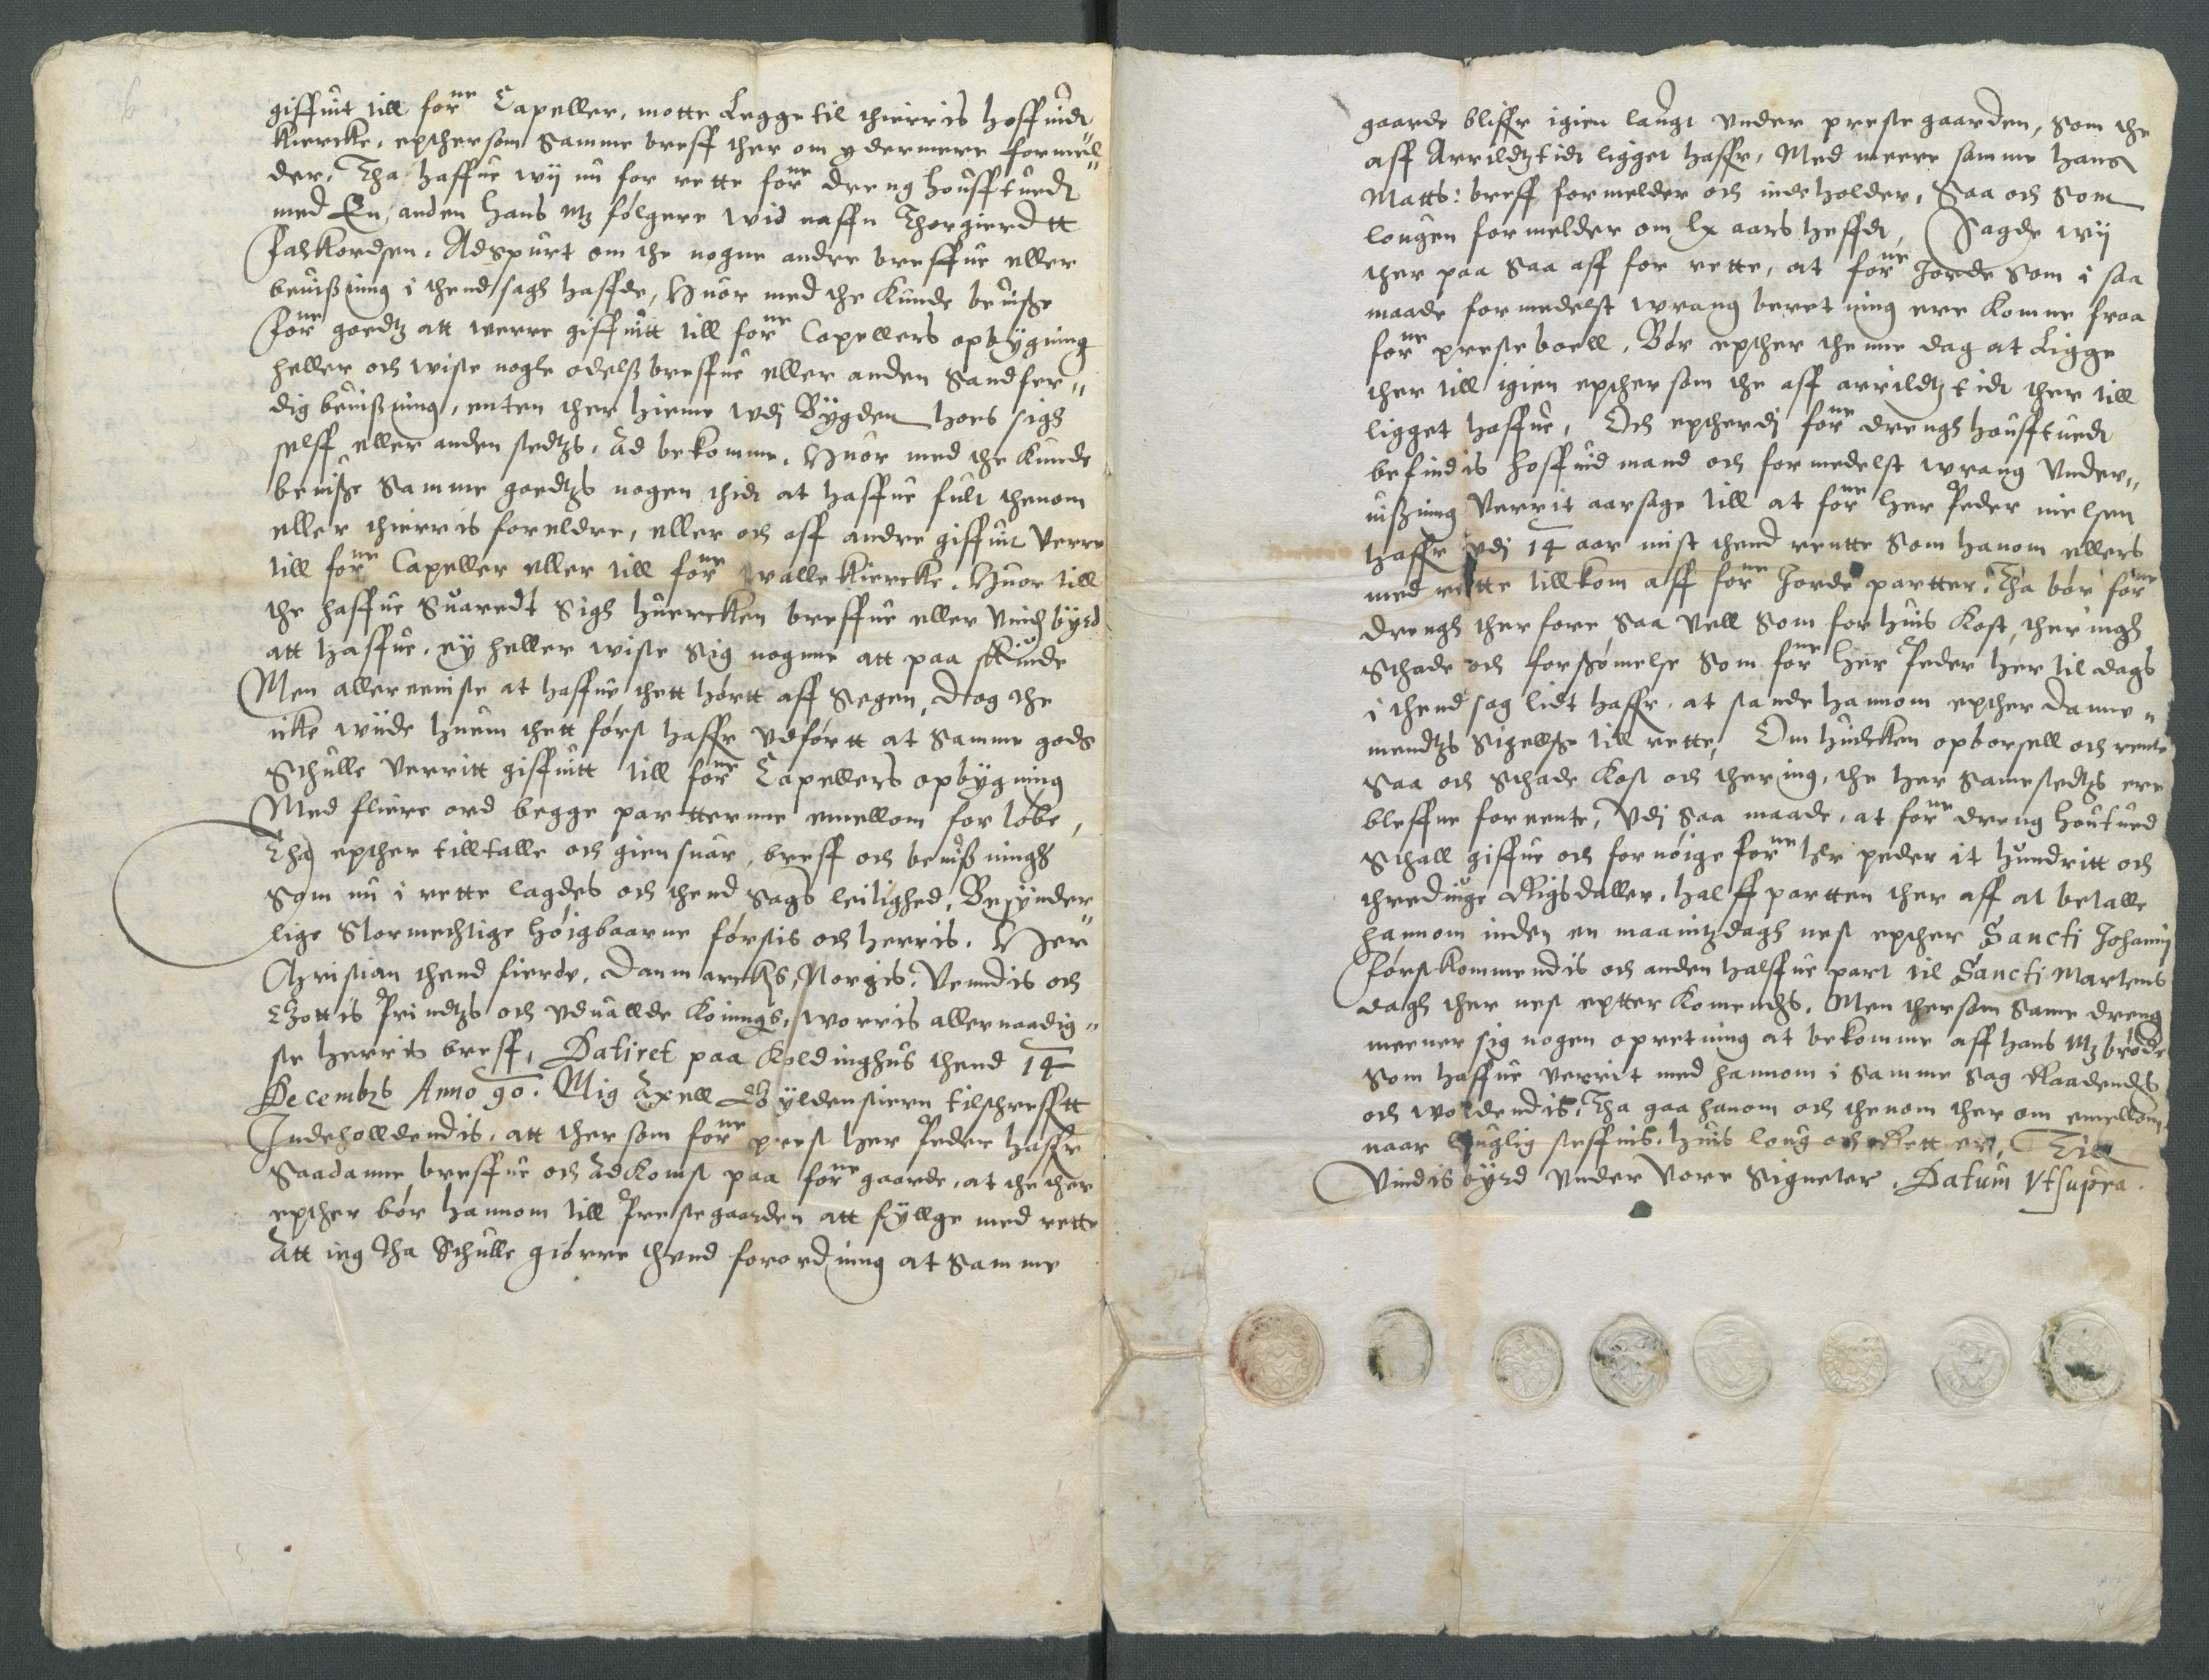 giffuit till forne Capeller, motte Legge til thierris hoffuidt
kiercke, epthersom samme breff ther om ydermere formel„
der, Tha haffue wij nu for rette forne dreng houfftuedt
med En anden hans mz følgere wid naffn Thorgierdtt
Falkordsen, Adspurt om the nogne andre breffue eller
beuißning i thend sagh haffde, Huor med the kunde beuiße
forne goedtz att werre giffuitt till forne Capellers opbygning
heller och wiste nogle odelß breffue eller anden sandfer„
dig beuißning, enten ther hieme wdj Bygden hoes sigh
selff eller anden stedtzs, Ad bekomme, Huor med the kunde
beuiße samme goedtzs nogen thidt at haffue fult thenom
eller thierris foreldre, eller och aff andre giffuit Verre
till forne Capeller eller till forne walle kiercke, Huor till
the haffue suaredt sigh huercken breffue eller Vindisbyrd
att haffue, ey heller wiste sig nogne att paa skiude
Men allereniste at haffue thett hørtt aff segen, dog the
icke wide huem thett først haffr Vdførtt at samme gods
schulle Verritt giffuitt till forne Capellers opbygning
Med fliere ord begge partterne emellom forløbe,
Tha epther tilltalle och giensuar, breff och beuißningh
som nu i rette lagdes och thend sags leilighed, Besynder„
lige Stormechtige høigbaarne førstis och herris, Her
Christian thend fierde, Danmarckis, Norgis, Venndis och
Gottis Prindtzs och Vduallde Konings, worris allernaadig„
ste herris breff, Datiret paa Koldinghus thend 14
Decembrs Anno 90. Mig Axell Gyldenstiern tilschrefftt
Indeholldendis, att ther som forne prest her Peder haffr
saadanne breffue och Adkomst paa forne gaarde, at the ther
epther bør hannom till Prestegaarden att fyllge med rette
Att ieg tha schulle giørre thend forordning at samme
gaarde bliffr igien laugt vnder preste gaarden, som the
aff Arrildtz tidt ligget haffr, Med meere samme hans
Matts: breff formelder och indeholder, saa och som
lougen formelder om lx aars heffdt, Sagde wij
ther paa saa aff for rette, at forne Jorde som i saa
maade formedelst wrang beretning ere komne fraa
forne presteboell, Bør epther thenne dag at Ligge
ther till igien epthersom the aff arrildtz tidt ther till
ligget haffue, Och eptherdj forne drengh houfftuedt
befindis hoffuidmand och formedelst wrang Vnder„
uißning Verrit aarsage till at forne her Peder nielsen
haffr vdj 14 aar mist thend rentte som hanom ellers
med rette tillkom aff forne Jorde partter, Tha bør forne
drengh therfore saa vell som for huis kost, theringh
schade och forsømelse som forne her Peder her til dags
i thend sag lidt haffr, at stande hannom epther danne„
mendtzs sigellse till rette, Om huilcken opborsell och rente
saa och schade kost och thering, the her samestedtzs ere
bleffne forente, Vdj saa maade, at forne dreng houtued
schall giffue och fornøige forne her peder it hundritt och
thrediuge Rigsdaller, halffpartten ther aff at betalle
hannom inden en maaintzdagh nest epther Sancti Johannj
førstkommendis och anden halffue part til Sancti Martens
dagh ther nest eptter komendis, Men thersom same dreng
meener sig nogen opretning at bekomme aff hans mz brødr
som haffue verrit med hannom i samme sag Raadendis
och woldendis, Tha gaa hanom och thenom ther om emellom
naar louglig steffnis, huis loug och Rett er, Till
Vindisbyrd vnder Vore Signeter, Datum Vtsupra.